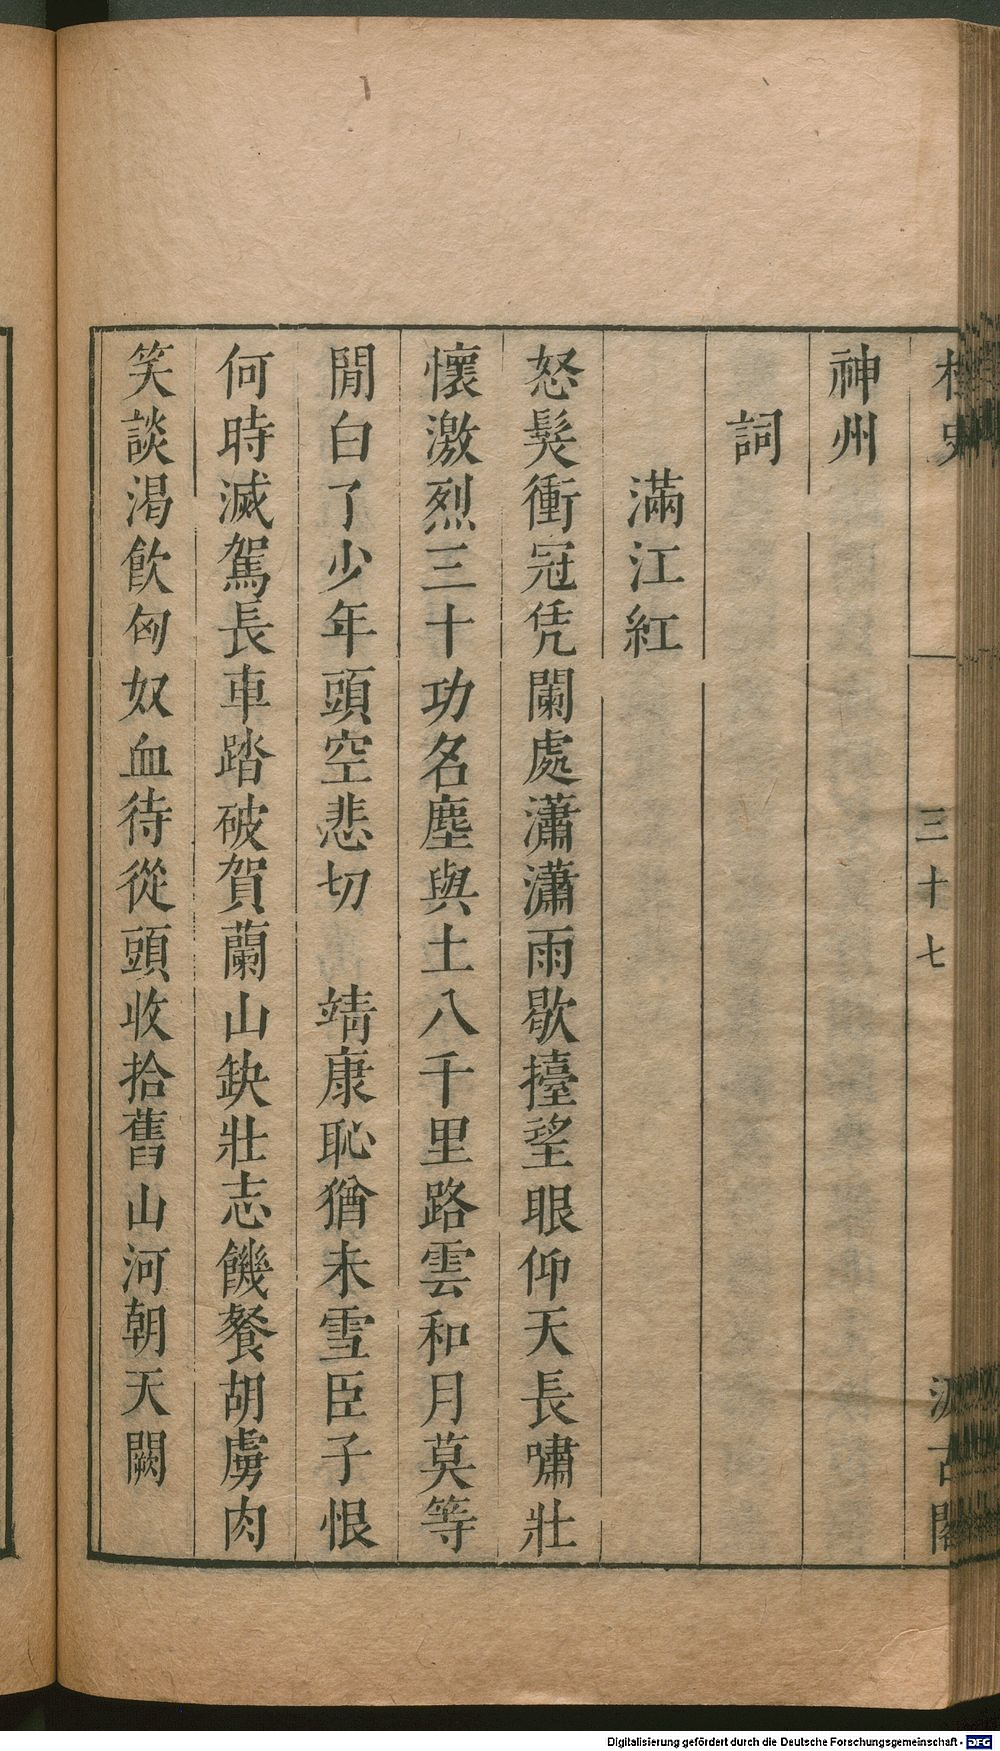 三十七
神州
詞
滿江紅
怒髮衝冠凭闌處瀟瀟雨歇擡望眼仰天長嘯壯
懷激烈三十功名塵與土八千里路雲和月莫等
閒白了少年頭空悲切　靖康恥猶未雪臣子恨
何時滅駕長車踏破賀蘭山缺壯志饑餐胡虜肉
笑談渴飲匈奴血待從頭收拾舊山河朝天闕
Digitalisierung gefördert durch die Deutsche Forschungsgemeinschaft - DFG